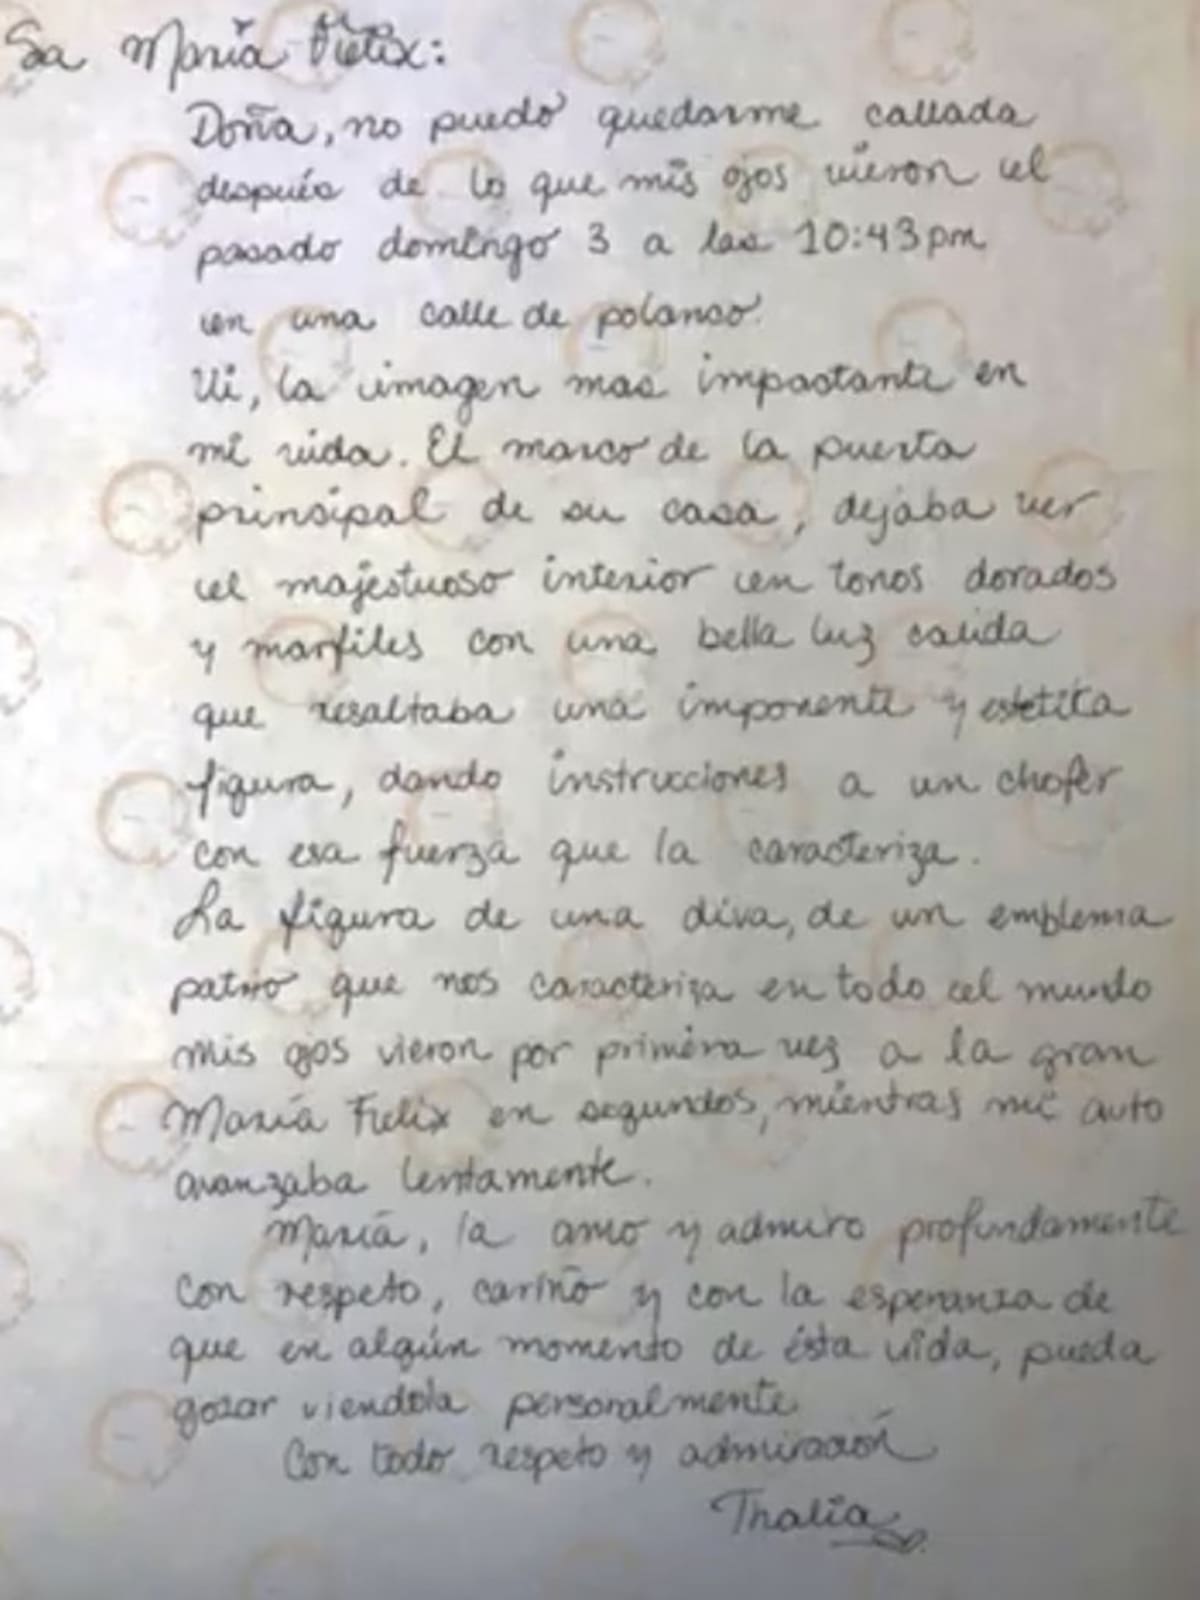 Sa María Félix:
Doña, no puedo quedarme callada
después de lo que mis ojos vieron el
pasado domingo 3 a las 10:43pm
en una calle de polanco.
Vi, la imagen mas impactante en
mi vida. El marco de la puerta
principal de su casa, dejaba ver
el majestuoso interior en tonos dorados
y marfiles con una bella luz calida
que resaltaba una imponente y estetica
figura, dando instrucciones a un chofer
con esa fuerza que la caracteriza.
La figura de una diva, de un emblema
patrio que nos caracteriza en todo el mundo
mis ojos vieron por primera vez a la gran
María Felix en segundos, mientras mi auto
avanzaba lentamente.
María, la amo y admiro profundamente
con respeto, cariño y con la esperanza de
que en algún momento de ésta vida, pueda
gozar viendola personalmente
Con todo respeto y admiración
Thalia